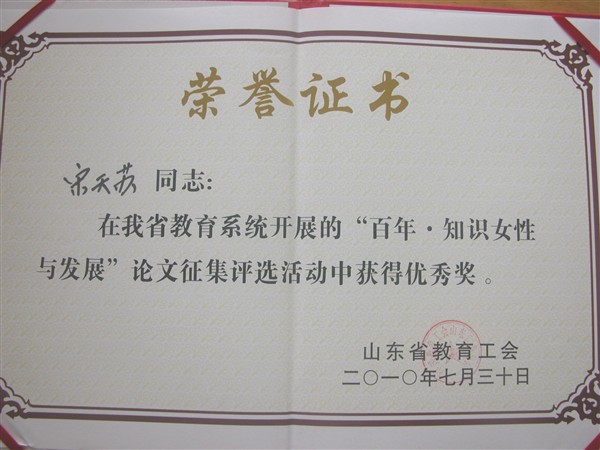 荣誉证书
宋天芬 同志:
在我省教育系统开展的“百年·知识女性
与发展”论文征集评选活动中获得优秀奖。
山东省教育工会
二〇一〇年七月三十日